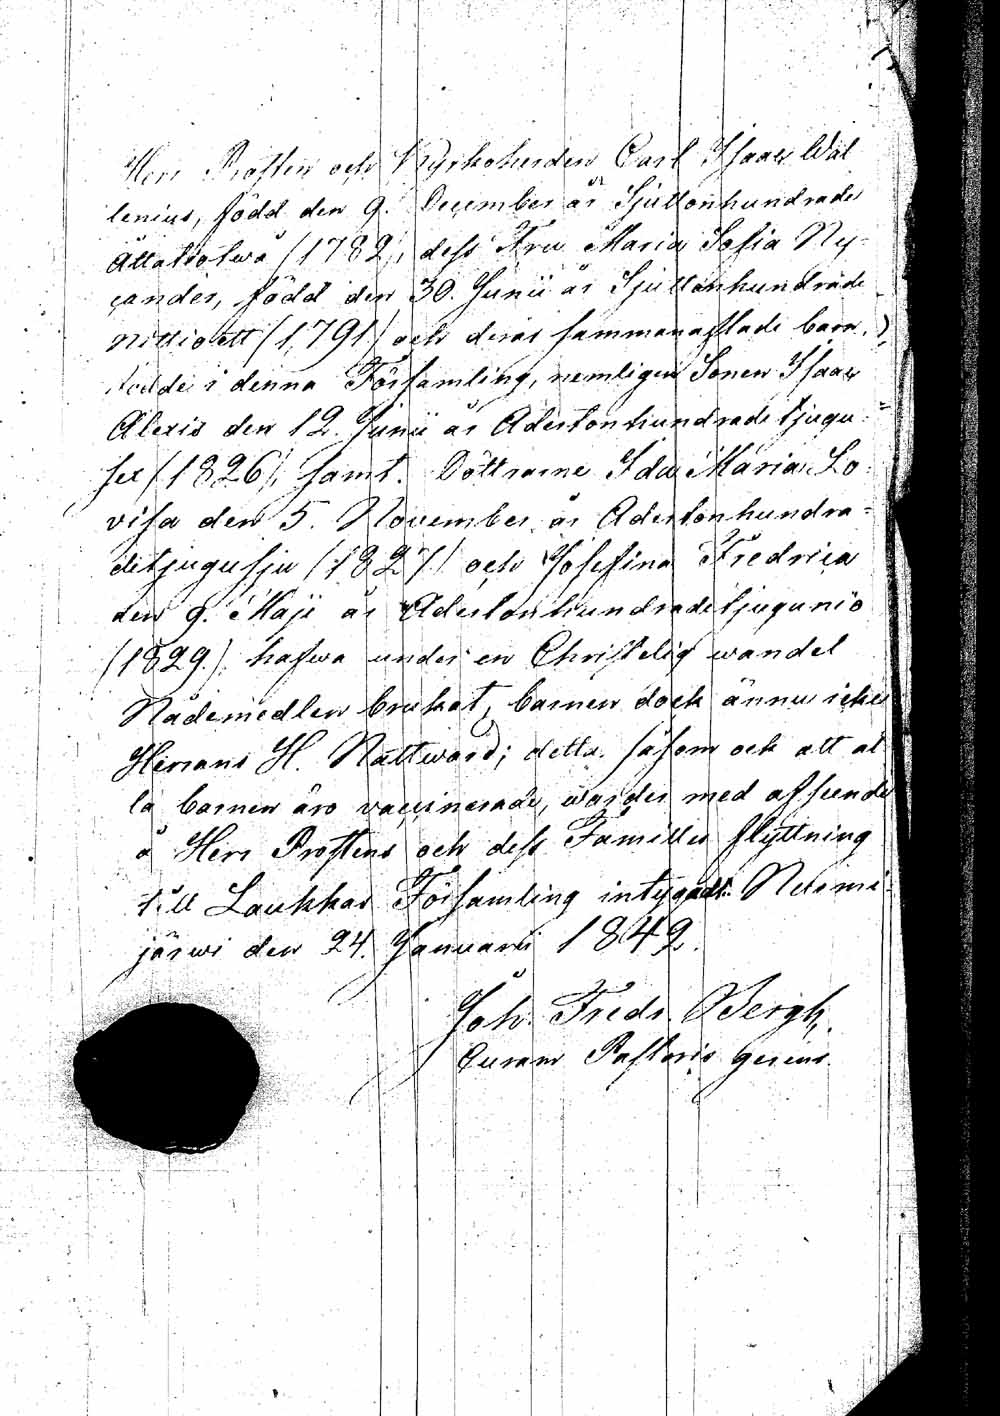 Herr Prosten och Kyrkoherden Carl Isaac Wal
lenius, född den 9. December år Sjuttonhundrade
Åttatiotwå (1782), dess Fru Maria Sofia Ny=
cander, född den 30. Junii år Sjuttonhundrade
nittioett (1791) och deras sammanaflade barn,
födde i denna Församling, nemligen Sonen Isaac
Alexis den 12. Junii år Adertonhundradetjugu=
sex (1826), samt Döttrarne Ida Maria Lo=
visa den 5. November år Adertonhundra=
detjugusju (1827) och Josefina Fredrica
den 9. Maji år Adertonhundradetjugunio
(1829) hafwa under en Christelig wandel
Nådemedlen brukat, barnen dock ännu icke
Herrans H. Nattward; detta såsom ock att al
la barnen äro vaccinerade, warder med afseende
å Herr Prostens och dess Familles flyttning
till Laukkas Församling intygadt. Nurmi=
järwi den 24. Januarii 1842.
Joh. Fredr. Bergh,
Curam Pastoris gerens.